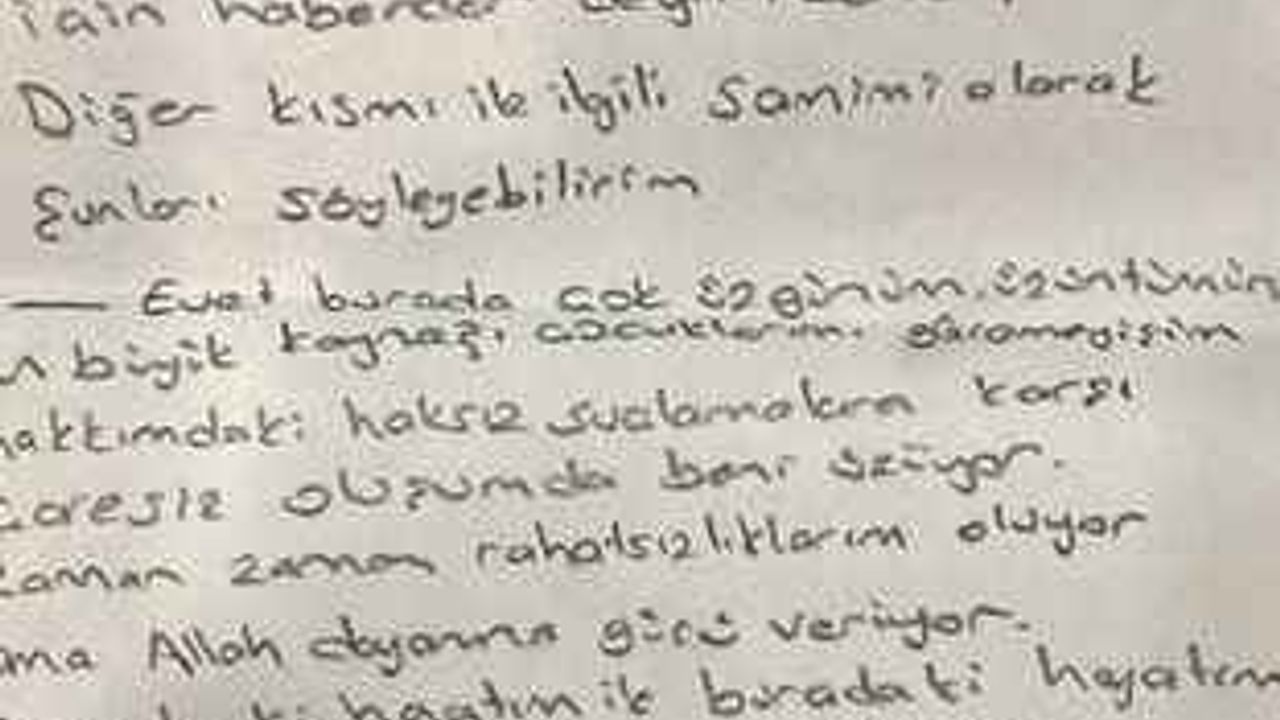 için haberdar
Diğer kısmı ile ilgili samimi olarak
şunları söyleyebilirim
— Evet burada çok üzgünüm. üzüntümün
büyük kaynağı çocuklarımı göremeyişim
hakkımdaki haksız suçlamalara karşı
çaresiz oluşumda beni üzüyor.
zaman zaman rahatsızlıklarım oluyor
ama Allah dayanma gücü veriyor.
hayatım ile buradaki hayatım